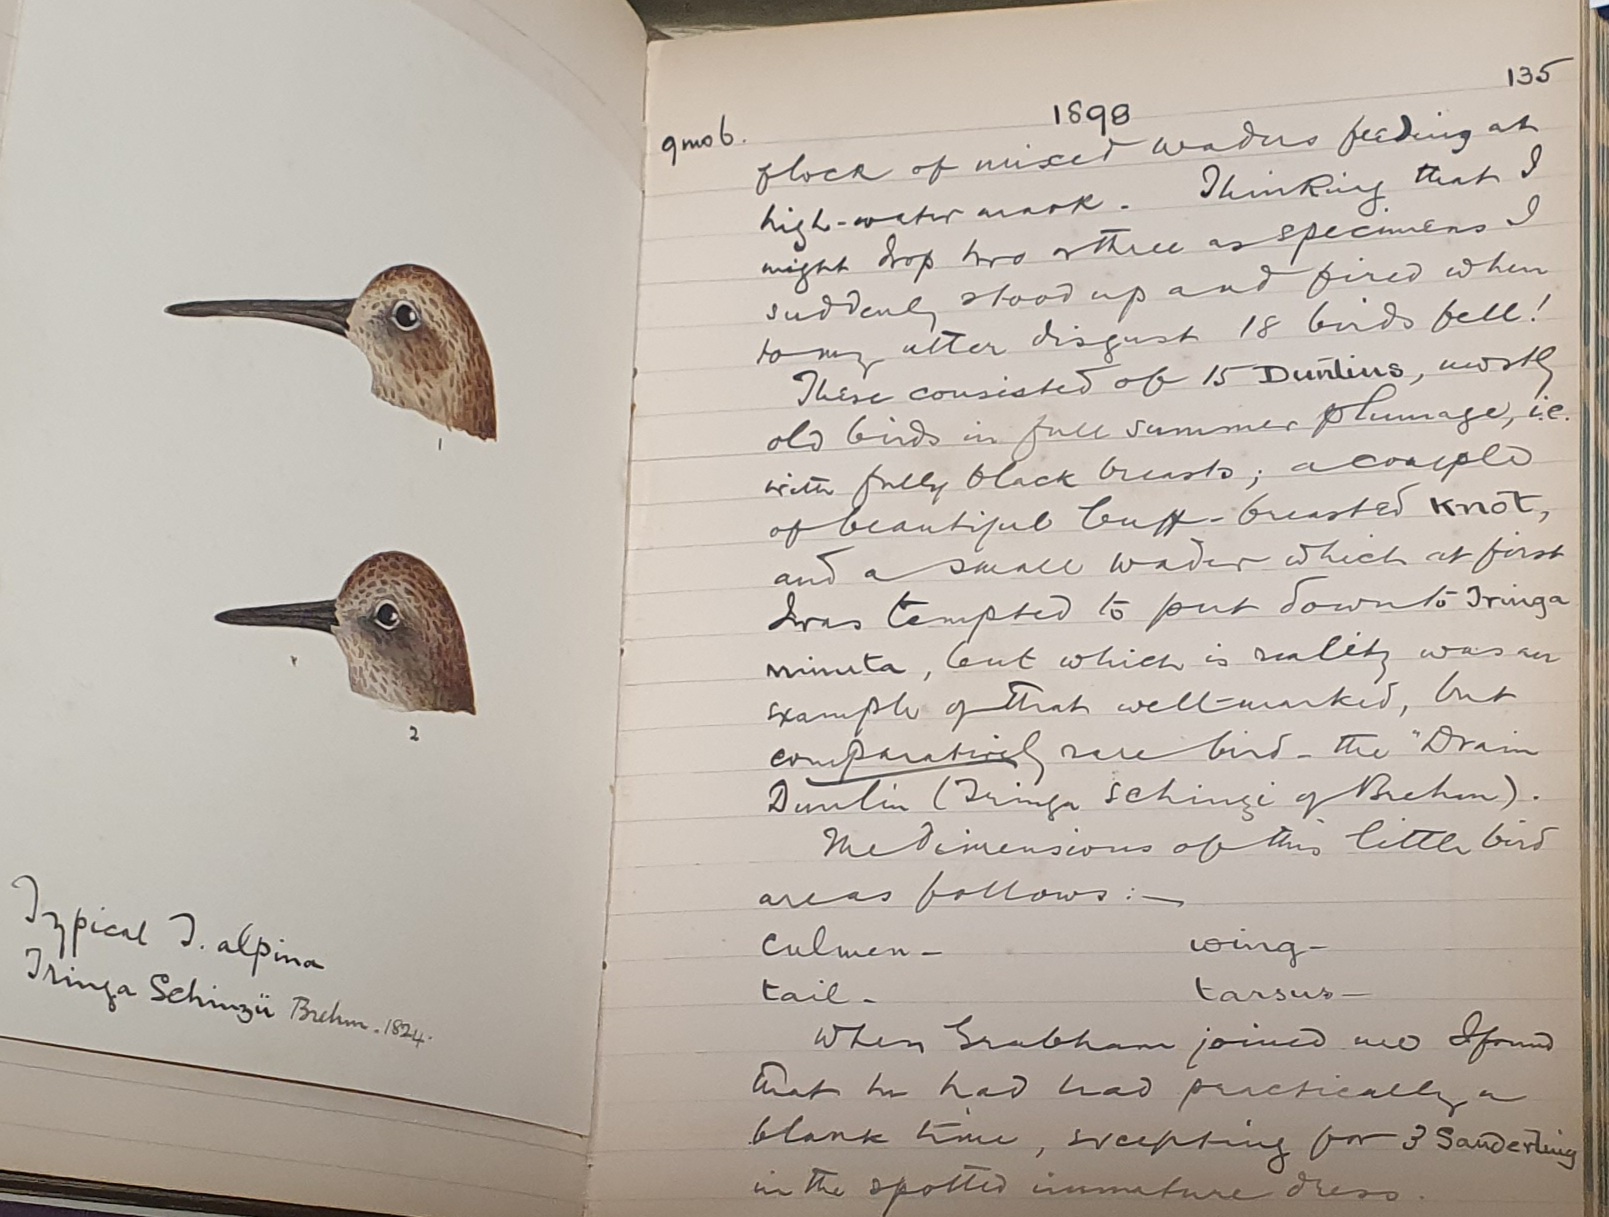 1
2
Typical T. alpina
Tringa Schinzii Brehm. 1824.
135
1898
9mo6.
flock of mixed waders feeding at
high-water mark. Thinking that I
might drop two or three as specimens I
suddenly stood up and fired when
to my utter disgust 18 birds fell!
These consisted of 15 Dunlins, mostly
old birds in full summer plumage, i.e.
with fully black breasts; a couple
of beautiful buff-breasted Knot,
and a small wader which at first
I was tempted to put down to Tringa
minuta, but which is reality was an
example of that well-marked, but
comparatively rare bird - the "Drain
Dunlin (Tringa Schinzi of Brehm).
The dimensions of this little bird
are as follows:—
culmen - wing -
tail - tarsus -
When Grabham joined me I found
that he had had practically a
blank time, excepting for 3 Sanderling
in the spotted immature dress.